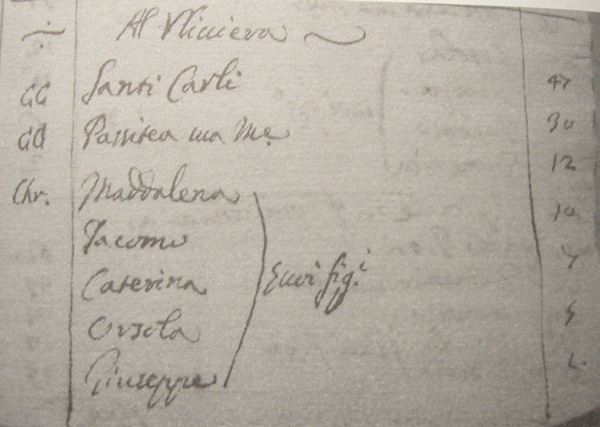 Al Uliviera
CC Santi Carli 47
CC Passitea sua Me. 30
Chr. Maddalena 12
Jacomo 10
Caterina suoi fig.i
Orsola 5
Giuseppe